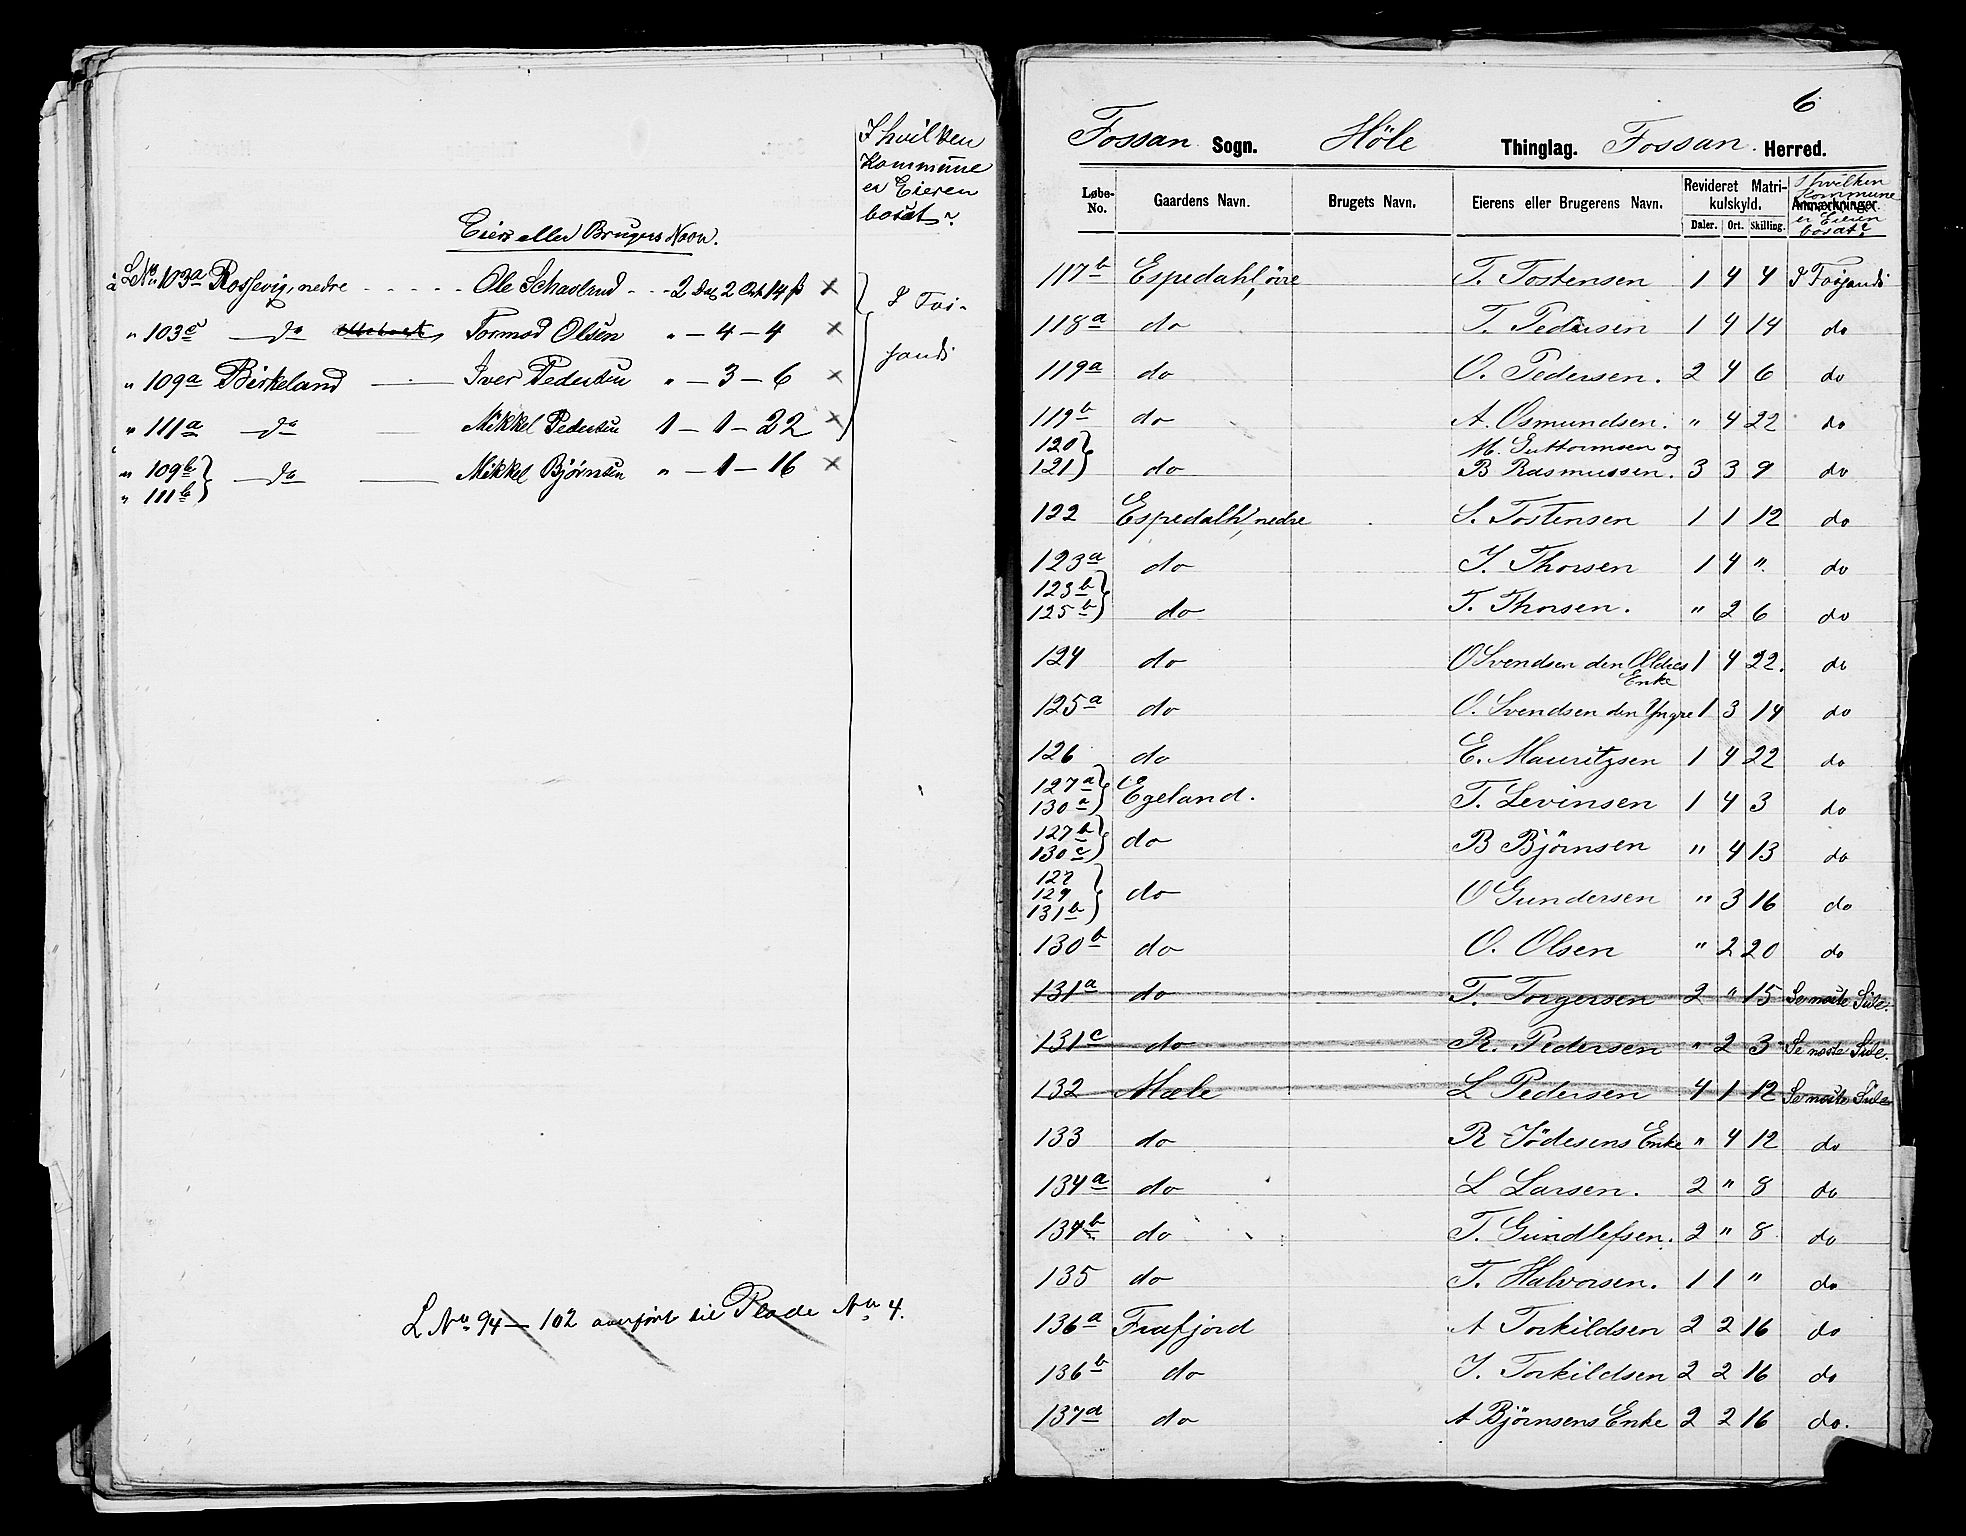 I hvilken
Kommune
er Eieren
bosat?
Eiers eller Brugers Navn.
LNo 103a Rossevig, nedre - - - - - Ole Schavland - - 2 Dal 2 Ort 14 ß x
" 103c do Tormod Olsen " - 4 - 4 x
" 109a Birkeland Iver Pedersen " - 3 - 6 x
" 111a do Mikkel Pedersen 1 - 1 - 22 x
" 109b do Mikkel Bjørnsen " - 1 - 16 x
" 111b
I For-
sand
L No 94 - 102 overført til Plade No 4.
6
Fossan Sogn. Höle Thinglag. Fossan Herred.
Løbe-No. Gaardens Navn. Brugets Navn. Eierens eller Brugerens Navn. Revideret Matrikulskyld. Anmærkninger.
I hvilken Kommune er Eieren bosat?
Daler. Ort. Skilling.
117b Espedahl, övre T. Tostensen 1 4 4 I Forsand
118a do T. Pedersen 1 4 14 do
119a do O. Pedersen. 2 4 6 do
119b do A. Osmundsen. " 4 22 do
120 M. Guttormsen og
121 do B Rasmussen. 3 3 9 do
122 Espedalh, nedre S. Tostensen 1 1 12 do
123a do J. Thorsen 1 4 " do
123b
125b do T. Thorsen. " 2 6 do
124 do O Svendsen den Ældres Enke 1 4 22. do
125a do O. Svendsen den Yngre 1 3 14 do
126 do E. Mauritzsen 1 4 22 do
127a
130a Egeland. T. Levinsen 1 4 3 do
127b
130c do B Bjørnsen " 4 13 do
127
129 do O Gundersen " 3 16 do
131b
130b do O. Olsen " 2 20 do
131a do T. Torgersen 2 " 15 Se næste Side.
131c do R. Pedersen " 2 3 Se næste Side.
132 Mæle L Pedersen 4 1 12 Se næste Side
133 do R Jödesens Enke " 4 12 do
134a do L Larsen. 2 " 8 do
134b do T. Gundlefsen. 2 " 8 do
135 do T. Halvorsen. 1 1 " do
136a Frafjord A Torkildsen 2 2 16 do
136b do J. Torkildsen 2 2 16 do
137a do A Bjørnsens Enke 2 2 16 do.